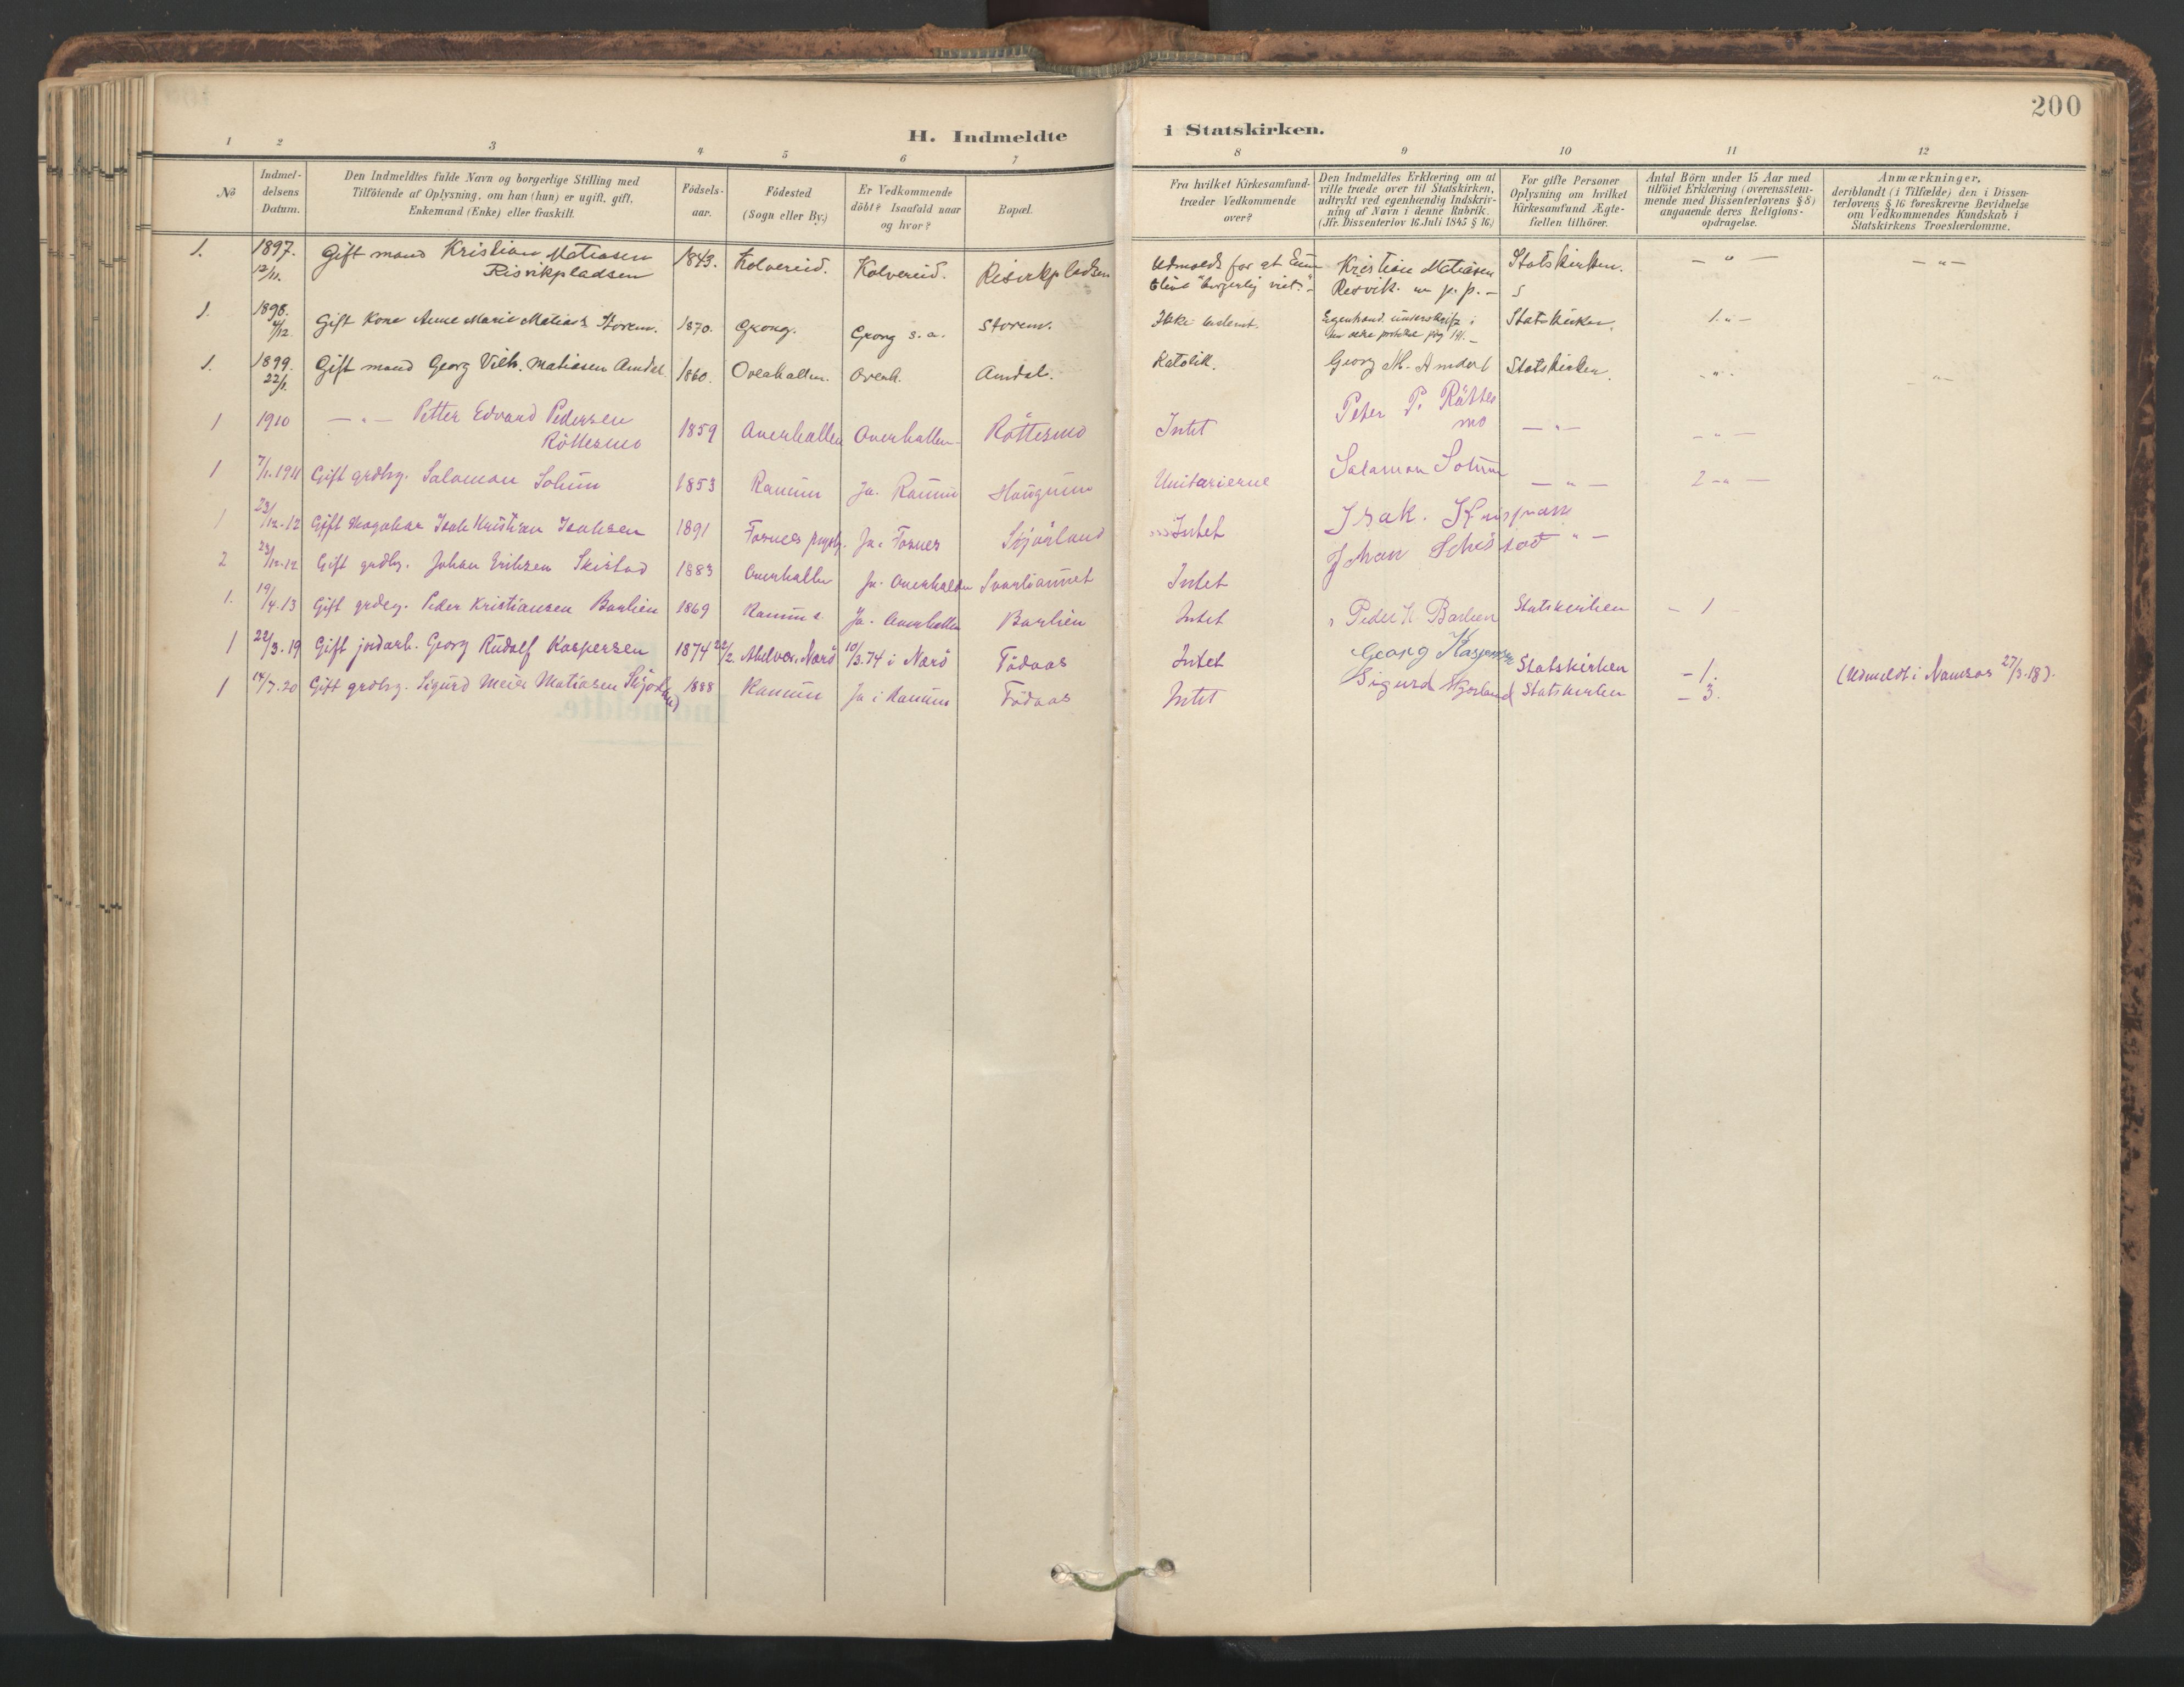 200
H. Indmeldte i Statskirken.
1 2 3 4 5 6 7 8 9 10 11 12
No
Indmel-
delsens
Datum.
Den Indmeldtes fulde Navn og borgerlige Stilling med
Tilföiende af Oplysning, om han (hun) er ugift, gift,
Enkemand (Enke) eller fraskilt.
Födsels-
aar.
Födested
(Sogn eller By.)
Er Vedkommende
döbt? Isaafald naar
og hvor?
Bopæl.
Fra hvilket Kirkesamfund
træder Vedkommende
over?
Den Indmeldtes Erklæring om at
ville træde over til Statskirken,
udtrykt ved egenhændig Indskriv-
ning af Navn i denne Rubrik.
(Jfr. Dissenterlov 16 Juli 1845 § 16.)
For gifte Personer
Oplysning om hvilket
Kirkesamfund Ægte-
fællen tilhörer.
Antal Börn under 15 Aar med
tilföiet Erklæring (overensstem-
mende med Dissenterlovens § 8)
angaaende deres Religions-
opdragelse.
Anmærkninger,
deriblandt (i Tilfælde) den i Dissen-
terlovens § 16 foreskrevne Bevidnelse
om Vedkommendes Kundskab i
Statskirkens Troeslærdomme.
1. 1897. Gift mand Kristian Matiasen 1843. Kolvereid. Kolvereid. Risvikpladsen Udmeldt for at Kristian Matiasen Statskirken. - " - - " -
12/11. Risvikpladsen borgerlig viet." Risvik m. p. p. -
1. 1898. Gift Kone Anne Marie Matias Storem. 1870. Grong. Grong s. a. Storem. Ikke Egenhænd. underskrift i Statskirken. 1. " -
4/12.
1. 1899. Gift mand Georg Vilh. Matiasen Amdal. 1860. Overhallen. Overh. Amdal. Katolik. Georg M. Amdal Statskirken. - " - - " -
22/1.
1 1910 - " - Petter Edvard Pedersen 1859 Overhallen Overhallen Röttesmo Intet Peter P. Röttes - " - - " -
Röttesmo mo
1 7/1.1911 Gift grdbr. Salamon Solum 1853 Ranum Ja. Ranum Haugum Unitarierne Salamon Solum - " - 2 - " -
1 23/12.12 Gift Isak Kristian Isaksen 1891 Fosnes Ja. Fosnes Skjörland Intet Isak.
2 23/12.12 Gift grdbr. Johan Eriksen Skistad 1883 Overhallen Ja. Overhallen Svarliaunet Intet Johan Schistad " -
1. 19/4.13 Gift grdbr. Peder Kristiansen Barlien 1869 Ranum Ja. Overhallen Barlien Intet Peder K. Barlien Statskirken - 1 -
1 22/3.19 Gift jordarb. Georg Rudolf Kaspersen 1874 22/2. Abelvær i Nærö 10/3.74 i Nærö Födaas Intet Georg Kaspersen Statskirken - 1. (Udmeldt i Namsos 27/3.18).
1 14/7.20 Gift grdbr. Sigurd Meier Matiasen Skjörland 1888 Ranum Ja i Ranum Födaas Intet Sigurd Skjörland Statskirken - 3.